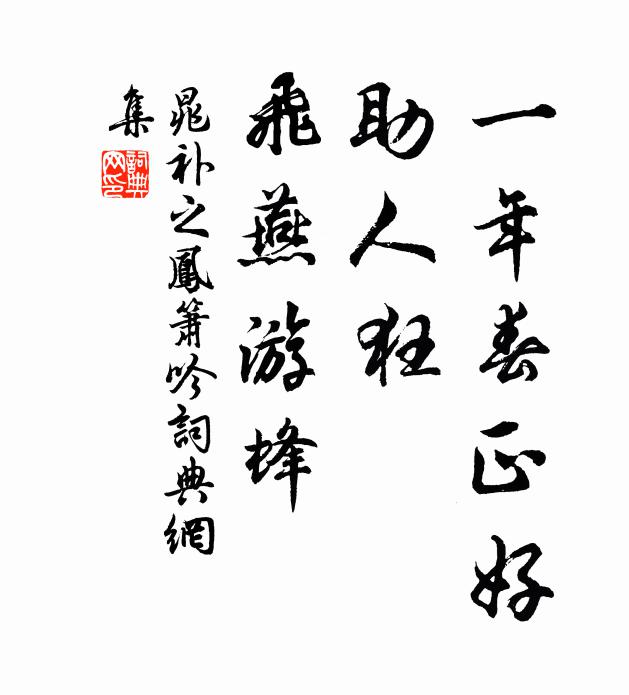 一年春正好
助人狂
飛燕游蜂
晁补之鳳簫吟詞典網
集
詞典
网印